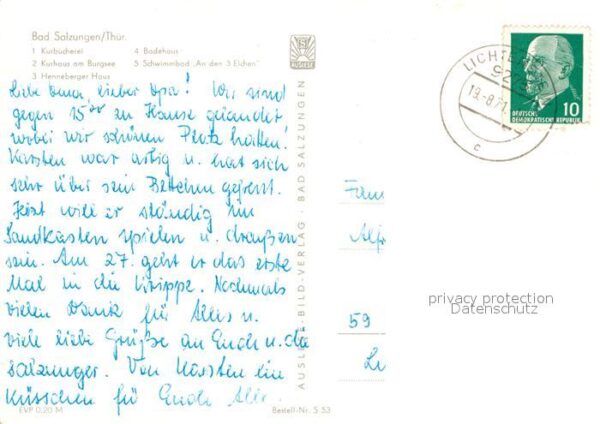 Bad Salzungen/Thür.
1 Kurbücherei
2 Kurhaus am Burgsee
3 Henneberger Haus
4 Badehaus
5 Schwimmbad „An den 3 Eichen"
Liebe Oma, lieber Opa! Wir sind
gegen 15⁰⁰ zu Hause gelandet
wobei wir schönen Platz hatten.
Karsten war artig u. hat sich
sehr über sein Bettchen gefreut.
Jetzt will er ständig im
Sandkasten spielen u. draußen
sein. Am 27. geht er das erste
Mal in die Krippe. Nochmals
vielen Dank für Alles u.
viele liebe Grüße an Euch u. die
Salzunger. Von Karsten ein
Küsschen für Euch Alle.
EVP 0,20 M
Bestell-Nr. S 53
AUSLESE-BILD-VERLAG · BAD SALZUNGEN
LICHTE
19.-8.71
c
10
DEUTSCHE
DEMOKRATISCHE REPUBLIK
Fam
Alfr
59
privacy protection
Datenschutz